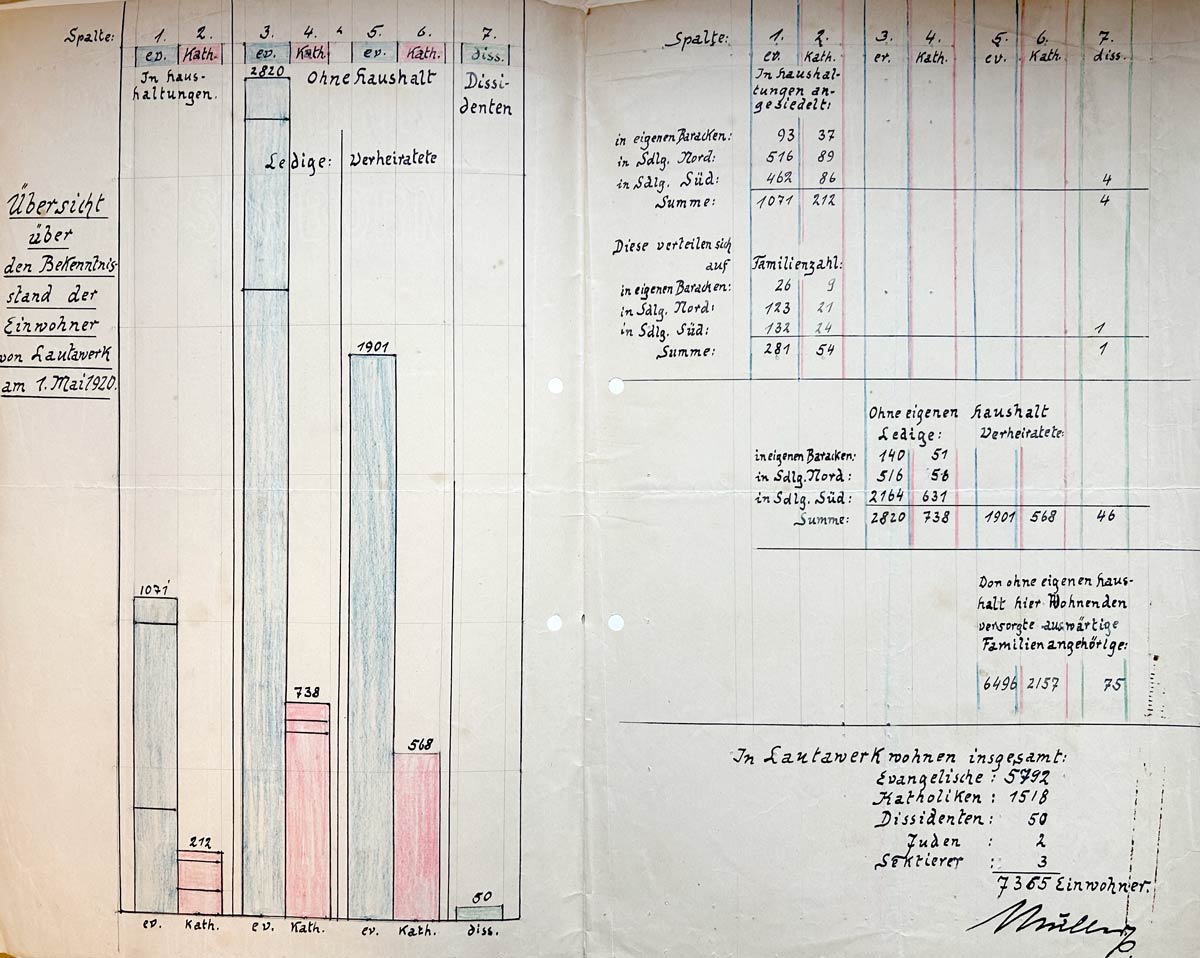 Spalte: 1. 2. 3. 4. 5. 6. 7.
ev. Kath. ev. Kath. ev. Kath. diss.
In haus-
haltungen.
2820
Ohne haushalt
Dissi-
denten
Ledige: Verheiratete
Übersicht
über
den Bekenntnis-
stand der
Einwohner
von Lautawerk
am 1. Mai 1920.
1901
1071
738
568
212
50
ev. Kath. ev. Kath. ev. Kath. diss.
Spalte: 1. 2. 3. 4. 5. 6. 7.
ev. Kath. ev. Kath. ev. Kath. diss.
In haushal-
tungen an-
gesiedelt:
in eigenen Baracken: 93 37
in Sdlg. Nord: 516 89
in Sdlg. Süd: 462 86 4
Summe: 1071 212 4
Diese verteilen sich
auf Familienzahl:
in eigenen Baracken: 26 9
in Sdlg. Nord: 123 21
in Sdlg. Süd: 132 24 1
Summe: 281 54 1
Ohne eigenen haushalt
Ledige: Verheiratete:
in eigenen Baracken: 140 51
in Sdlg. Nord: 516 56
in Sdlg. Süd: 2164 631
Summe: 2820 738 1901 568 46
Von ohne eigenen haus-
halt hier Wohnenden
versorgte auswärtige
Familienangehörige:
6496 2157 75
In Lautawerk wohnen insgesamt:
Evangelische: 5792
Katholiken: 1518
Dissidenten: 50
Juden: 2
Sektierer: 3
7365 Einwohner.
Müller